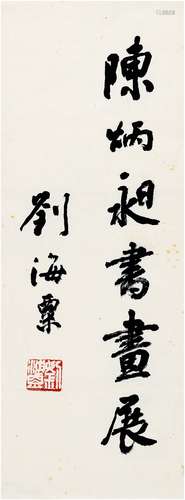 陳炳昶書畫展
劉海粟